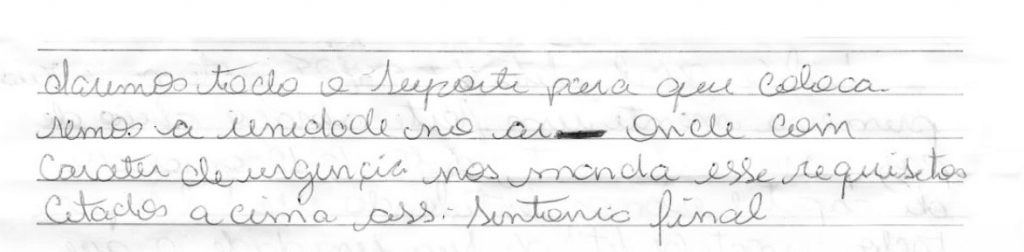 daremos todo o suporte para que coloca-
remos a unidade no ar Onde com
carater de urgencia nos manda esse requisitos
citados a cima ass: Sintonia final